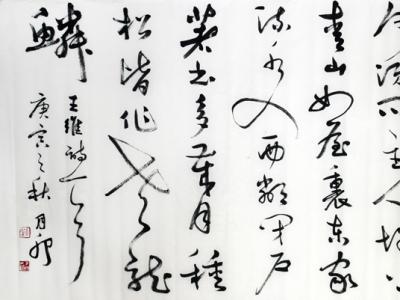 何須問主人城上
青山如屋裏東家
流水入西鄰閉戶
著書多歲月種
松皆作老龍
鱗
王維詩一首
庚寅之秋月